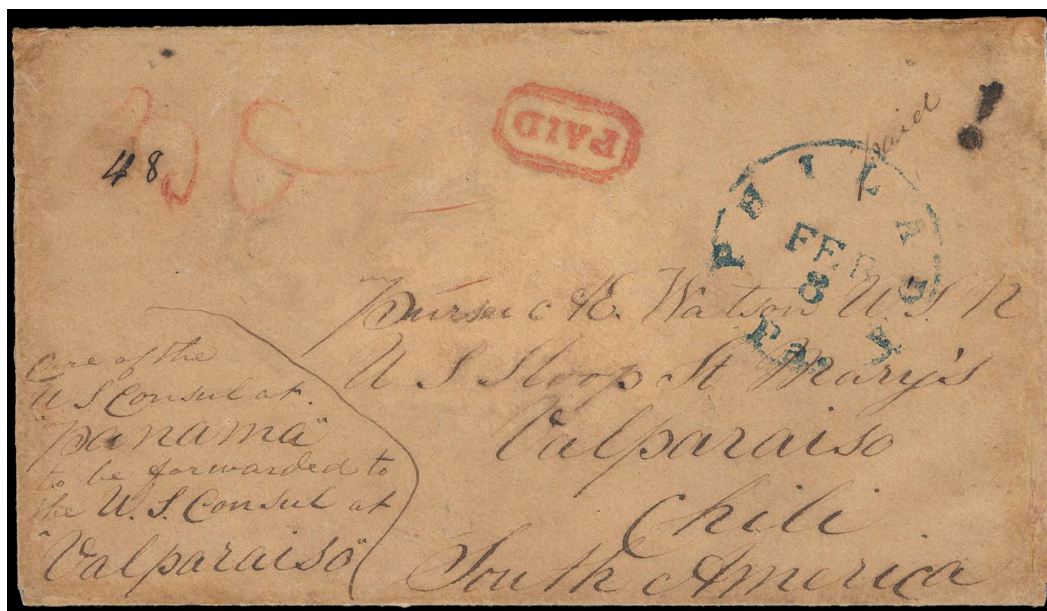 PAID
48
paid
PHILADA
FEB
8
Pa
Purser C R. Watson U.S.N
U S Sloop St Mary's
Valparaiso
Chili
South America
Care of the
U S Consul at.
"Panama"
to be forwarded to
the U.S. Consul at
"Valparaiso"